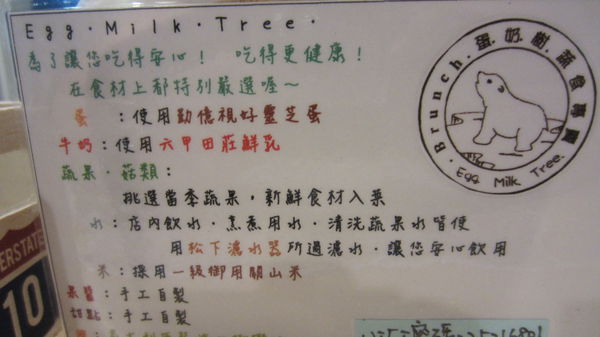 Egg·Milk·Tree·
為了讓您吃得安心! 吃得更健康!
在食材上都特別嚴選喔~
蛋 :使用勤億視好靈芝蛋
牛奶:使用六甲田莊鮮乳
蔬果·菇類:
挑選當季蔬果,新鮮食材入菜
水:店內飲水·烹煮用水·清洗蔬果水皆使
用松下濾水器所過濾水·讓您安心飲用
米:採用一級御用關山米
果醬:手工自製
甜點:手工自製
Brunch·蛋·奶·樹·蔬食
Egg Milk Tree
ERSTATE
10